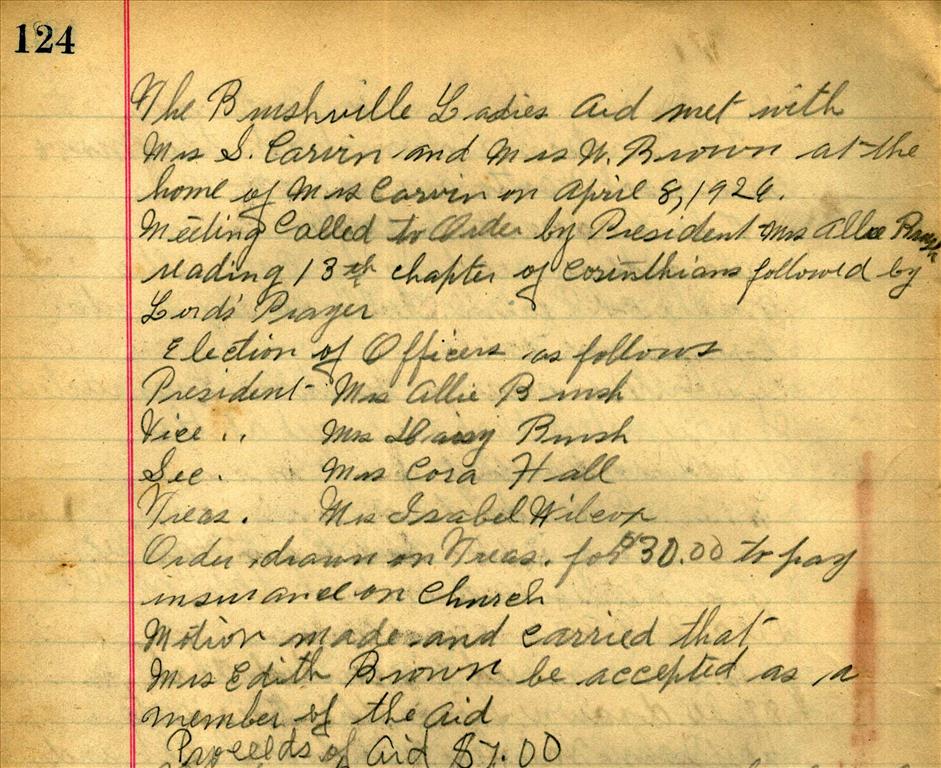 124
The Brushville Ladies Aid met with
Mrs S. Carvin and Mrs W. Brown at the
home of Mrs Carvin on April 8, 1926.
Meeting Called to Order by President Mrs Allie Brush
reading 13th chapter of Corinthians followed by
Lord's Prayer
Election of Officers as follows
President Mrs Allie Brush
Vice " Mrs Daisy Brush
Sec. Mrs Cora Hall
Treas. Mrs Isabel Wilcox
Order drawn on Treas. for $30.00 to pay
insurance on Church
Motion made and carried that
Mrs Edith Brown be accepted as a
member of the Aid
Proceeds of Aid $7.00